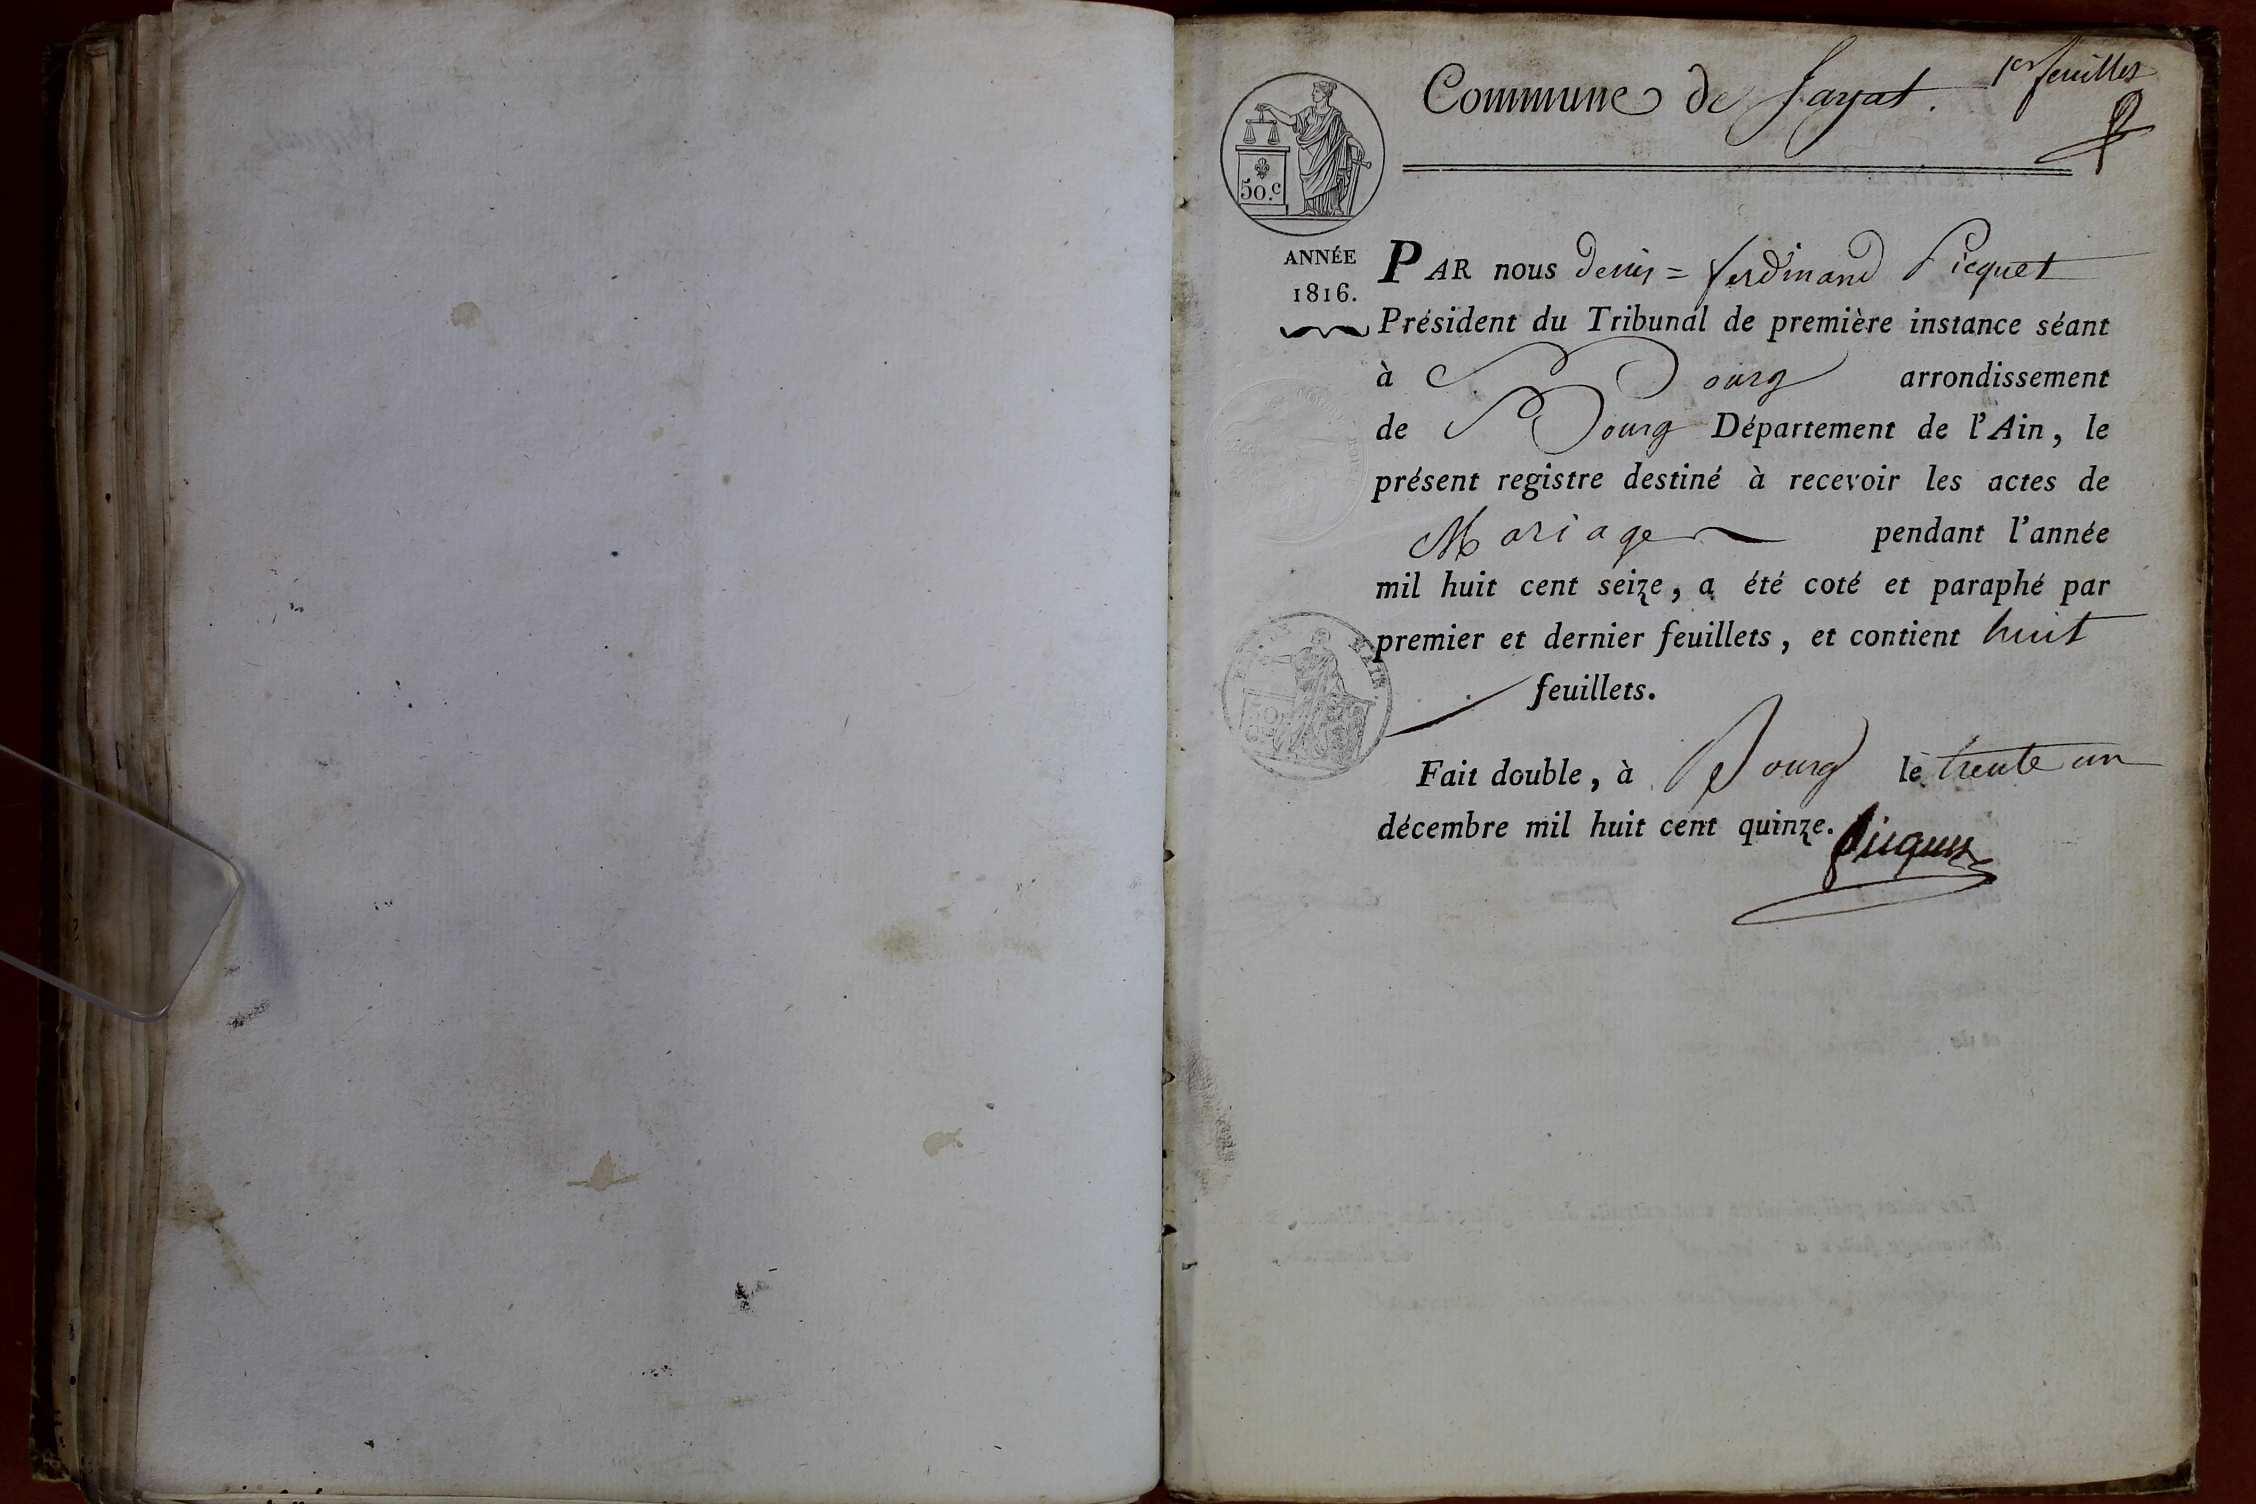 1er feuillet
Commune de Jayat.
50.c
ANNÉE
1816.
PAR nous denis = ferdinand Picquet
Président du Tribunal de première instance séant
à Bourg arrondissement
de Bourg Département de l'Ain, le
présent registre destiné à recevoir les actes de
Mariage pendant l'année
mil huit cent seize, a été coté et paraphé par
premier et dernier feuillets, et contient huit
feuillets.
Fait double, à Bourg le trente un
décembre mil huit cent quinze.
Picquet